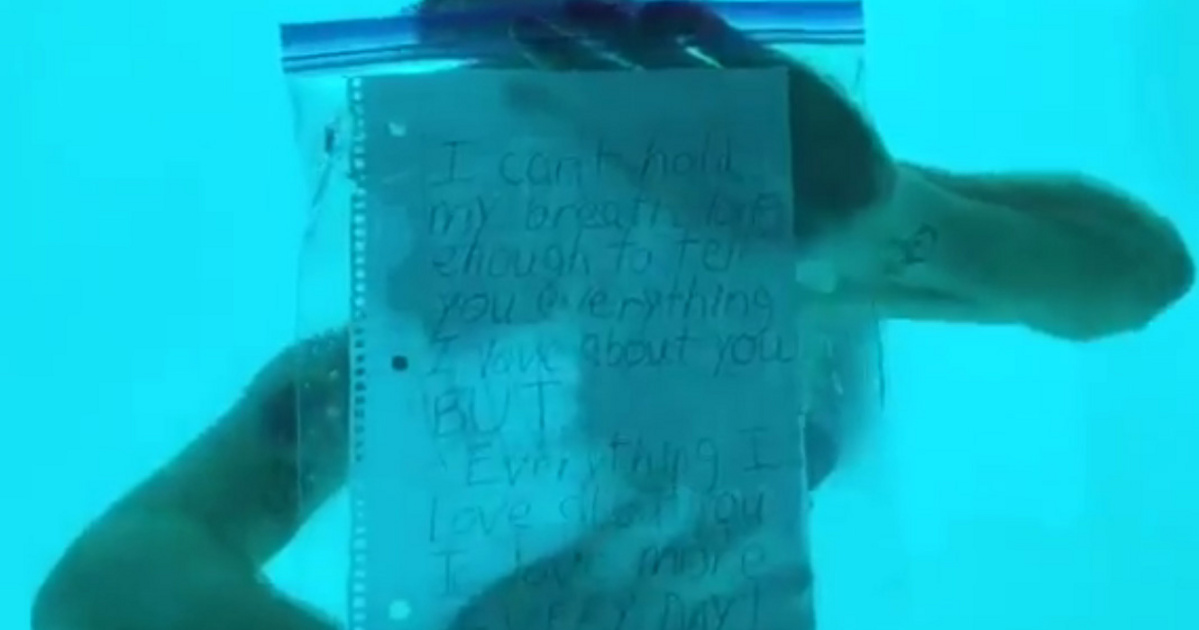 I can't hold
my breath long
enough to tell
you everything
I love about you
BUT
Everything I
Love about you
I love more
EVERY DAY!